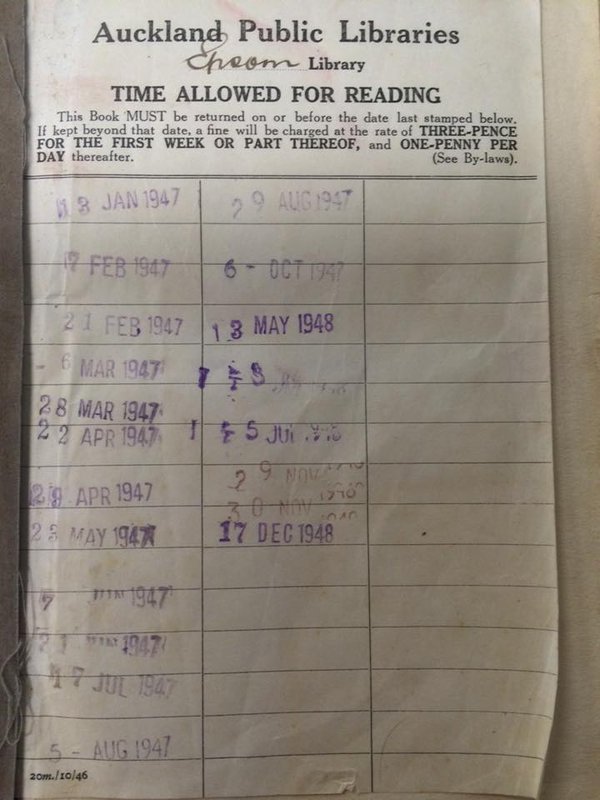 Auckland Public Libraries
Epsom Library
TIME ALLOWED FOR READING
This Book MUST be returned on or before the date last stamped below.
If kept beyond that date, a fine will be charged at the rate of THREE-PENCE
FOR THE FIRST WEEK OR PART THEREOF, and ONE-PENNY PER
DAY thereafter. (See By-laws).
13 JAN 1947
FEB 1947
21 FEB 1947
- 6 MAR 1947
28 MAR 1947
22 APR 1947
APR 1947
MAY 1947
JUN 1947
JUN 1947
17 JUL 1947
5 - AUG 1947
29 AUG 1947
6 - OCT 1947
13 MAY 1948
JUL
29 NOV
30 NOV
17 DEC 1948
20m./10/46